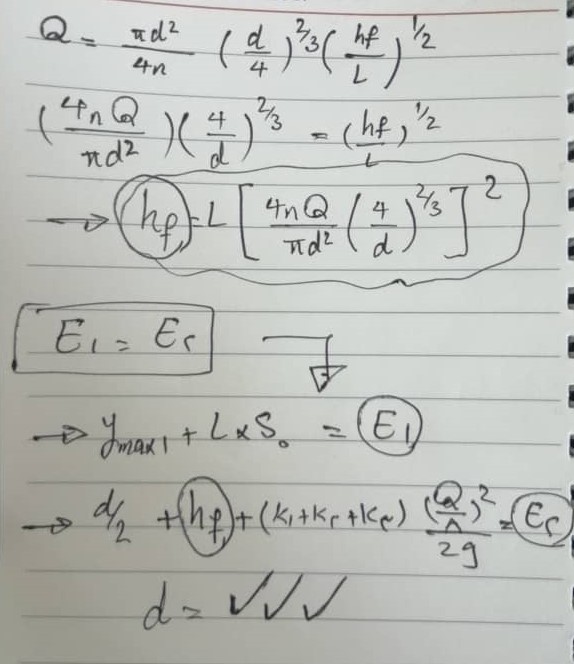 Q = πd²/4n (d/4)^2/3 (hf/L)^1/2
(4nQ/πd²)(4/d)^2/3 = (hf/L)^1/2
→ hf = L [4nQ/πd² (4/d)^2/3]²
E₁ = E₂
→ ymax1 + L×S₀ = E₁
→ d/2 + hf + (K₁+K₂+K₃) (Q/A)²/2g = E₂
d = ✓✓✓